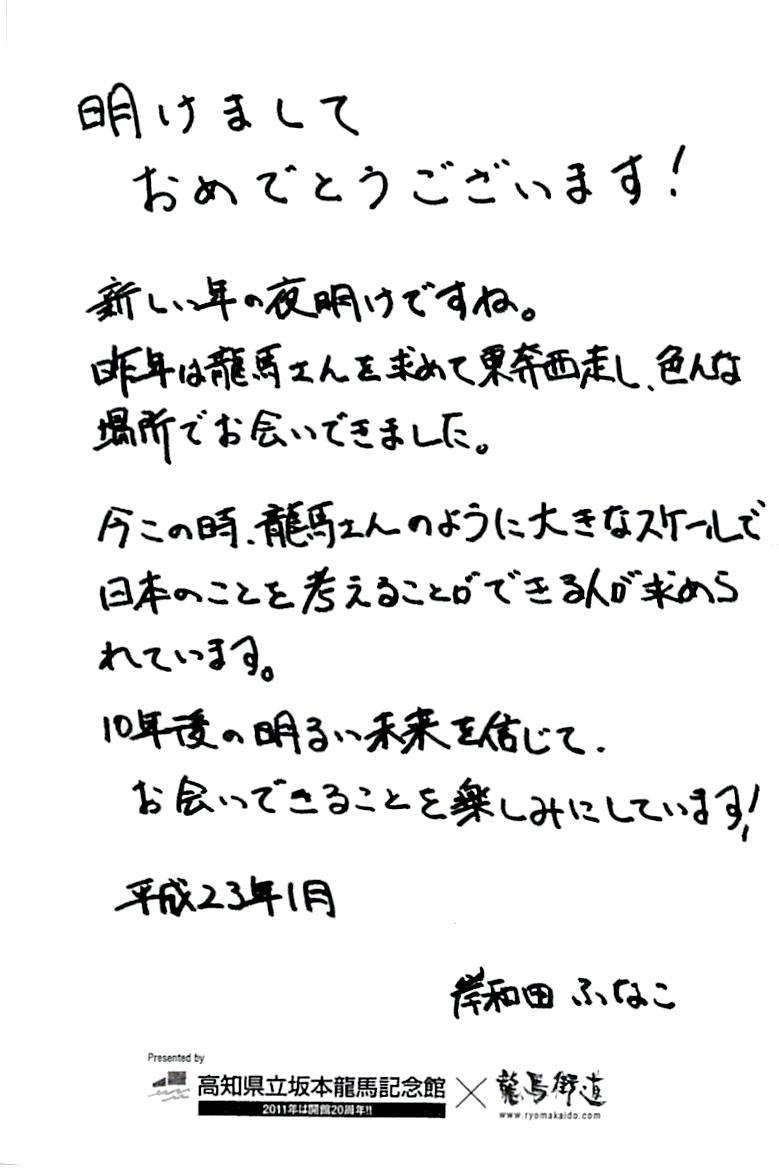 明けまして
おめでとうございます!
新しい年の夜明けですね。
昨年は龍馬さんを求めて東奔西走し、色んな
場所でお会いできました。
今この時、龍馬さんのように大きなスケールで
日本のことを考えることができる人が求めら
れています。
10年後の明るい未来を信じて、
お会いできることを楽しみにしています!
平成23年1月
岸和田 ふなこ
Presented by
高知県立坂本龍馬記念館
2011年は開館20周年!!
×
龍馬街道
www.ryomakaido.com